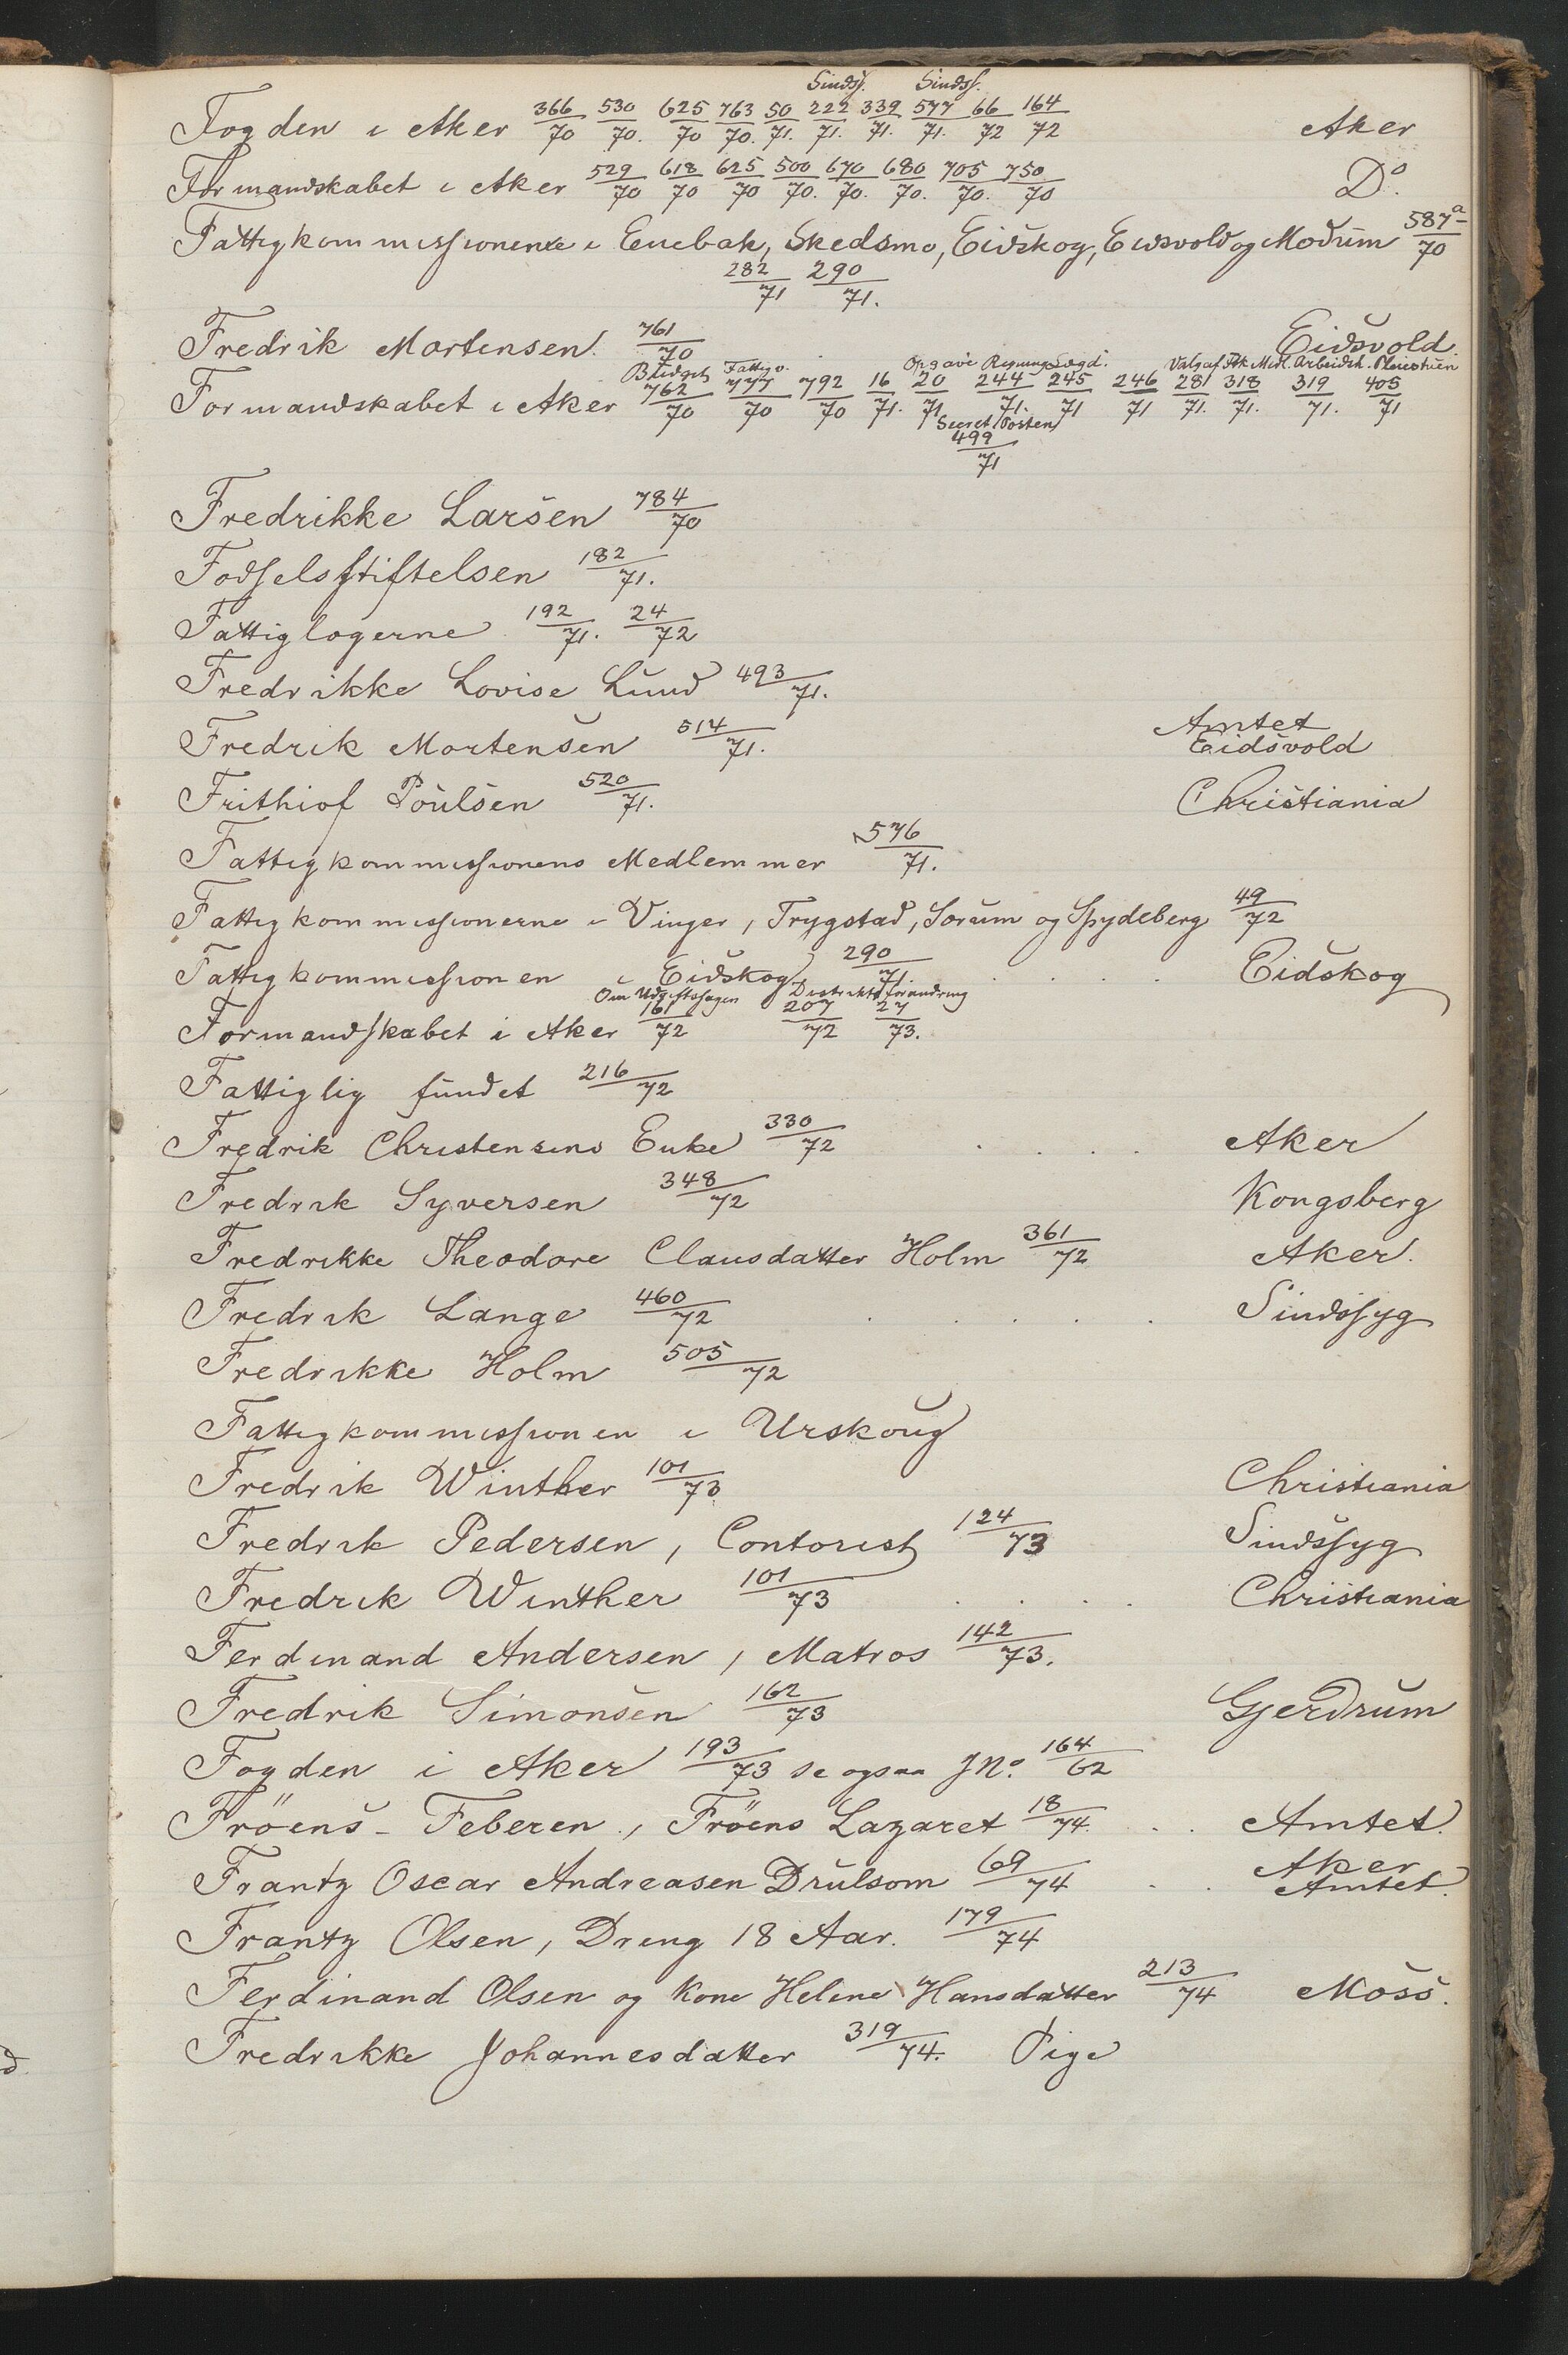 Sindss. Sindss.
Fogden i Aker 366/70 530/70. 625/70 763/70. 50/71. 222/71. 339/71. 577/71. 66/72 164/72 Aker
Formandskabet i Aker 529/70 618/70 625/70 500/70. 670/70. 680/70. 705/70. 750/70 Do.
Fattigkommissionerne i Enebak, Skedsmo, Eidskog, Eidsvold og Modum 587a/70
282/71 290/71.
Fredrik Mortensen. 761/70 Eidsvold.
Budget Fattigv. Opgave Regning Valg af Arbeidsh.
Formandskabet i Aker 762/70 777/70 792/70 16/71. 20/71 244/71. 245/71 246/71 281/71. 318/71. 319/71. 405/71
Secret Posten
499/71
Fredrikke Larsen 784/70
Fødselsstiftelsen 182/71.
Fattiglogerne 192/71. 24/72
Fredrikke Lovise Lund 493/71.
Amtet
Fredrik Mortensen 514/71. Eidsvold
Frithiof Poulsen 520/71. Christiania
Fattigkommissionens Medlemmer 576/71.
Fattigkommissionerne i Vinger, Trygstad, Sorum og Spydeberg 49/72
Fattigkommissionen i Eidskog 290/71. Eidskog
Om Udgiftssagen Distriktsforandring
Formandskabet i Aker 161/72 207/72 27/73.
Fattiglig fundet 216/72
Fredrik Christensens Enke 330/72 Aker
Fredrik Syversen 348/72 Kongsberg
Fredrikke Theodore Clausdatter Holm 361/72 Aker.
Fredrik Lange 460/72 Sindssyg
Fredrikke Holm 505/72
Fattigkommissionen i Urskoug
Fredrik Winther 101/73 Christiania
Fredrik Pedersen, Contorist 124/73 Sindssyg
Fredrik Winther 101/73 Christiania
Ferdinand Andersen, Matros 142/73.
Fredrik Simonsen 162/73 Gjerdrum
Fogden i Aker 193/73 se ogsaa JNo. 164/62
Fröens-Feberen, Fröens Lazaret 18/74. Amtet.
Aker
Frantz Oscar Andreasen Drulsom 69/74 Amtet.
Frantz Olsen, Dreng 18 Aar. 179/74
Ferdinand Olsen og Kone Helene Hansdatter 213/74 Moss.
Fredrikke Johannesdatter 319/74. Pige